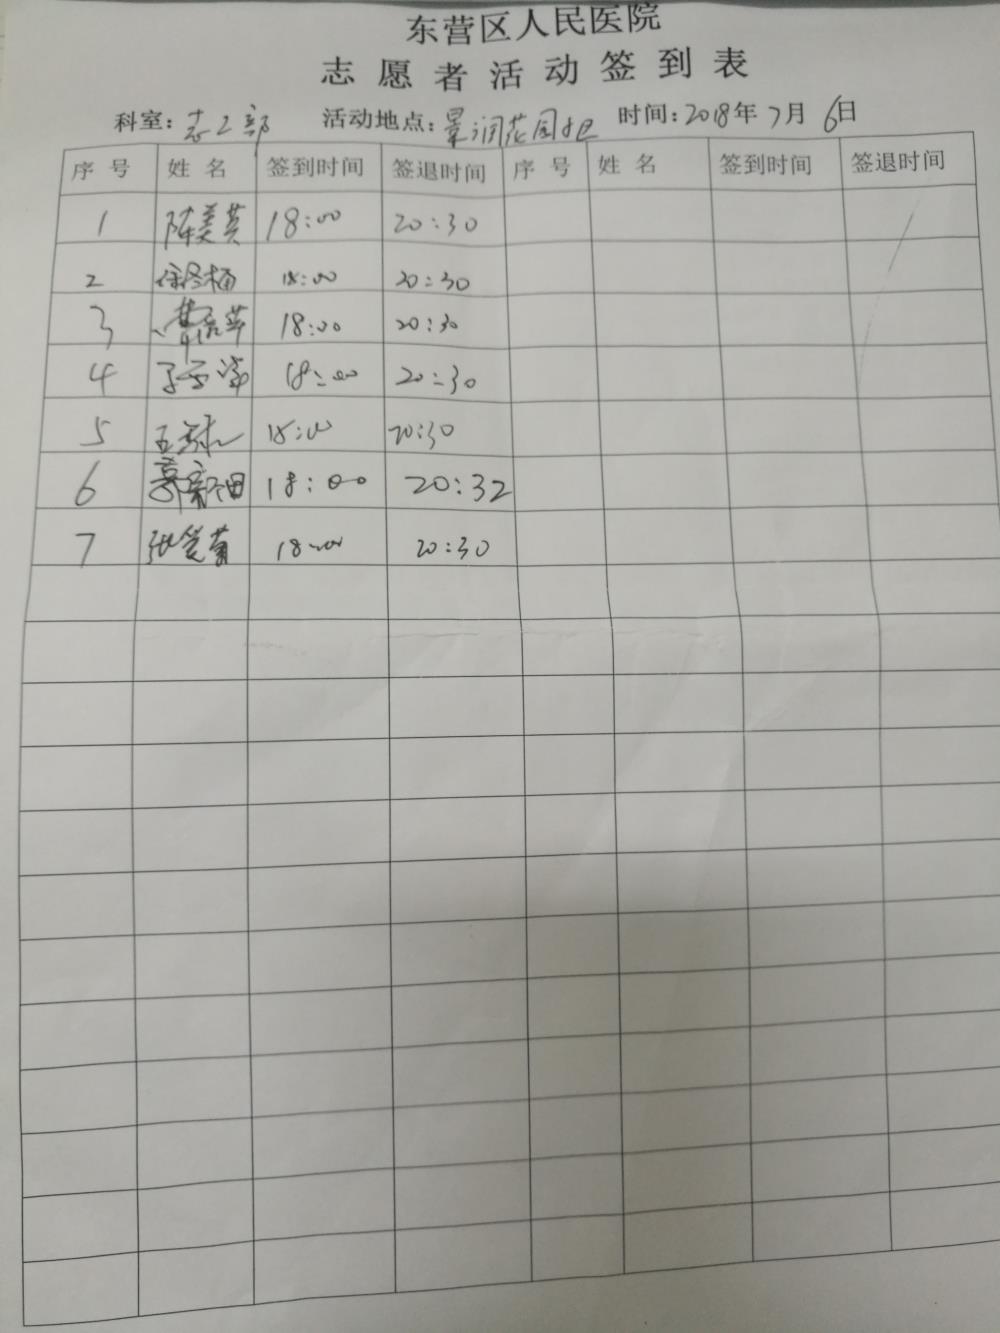 东营区人民医院
志愿者活动签到表
科室:志工部 活动地点:景润花园小区 时间:2018年7月6日
序号 姓名 签到时间 签退时间 序号 姓名 签到时间 签退时间
1 陈美英 18:00 20:30
2 18:00 20:30
3 18:00 20:30
4 18:00 20:30
5 18:00 20:30
6 18:00 20:32
7 18:00 20:30